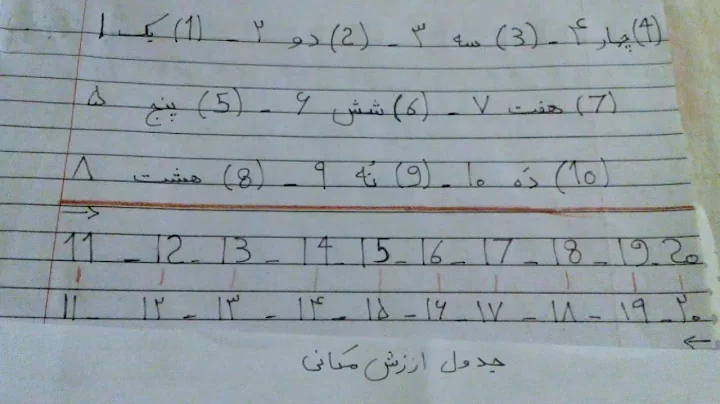 ۱ یک (1) - ۲ دو (2) - ۳ سه (3) - ۴ چار (4)
۵ پنج (5) - ۶ شش (6) - ۷ هفت (7)
۸ هشت (8) - ۹ نُه (9) - ۱۰ دَه (10)
→
11 - 12 - 13 - 14 - 15 - 16 - 17 - 18 - 19 - 20
۱۱ - ۱۲ - ۱۳ - ۱۴ - ۱۵ - ۱۶ - ۱۷ - ۱۸ - ۱۹ - ۲۰
←
جدول ارزش مکانی